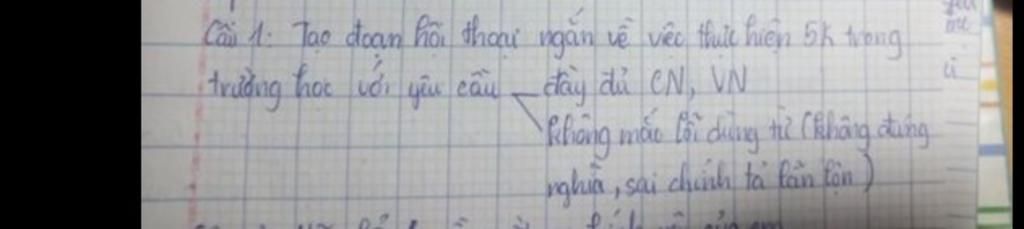 Câu 1: Tạo đoạn hội thoại ngắn về việc thực hiện 5k trong
trường học với yêu cầu – đầy đủ CN, VN
không mắc lỗi dùng từ (không đúng
nghĩa, sai chính tả lẫn lộn)